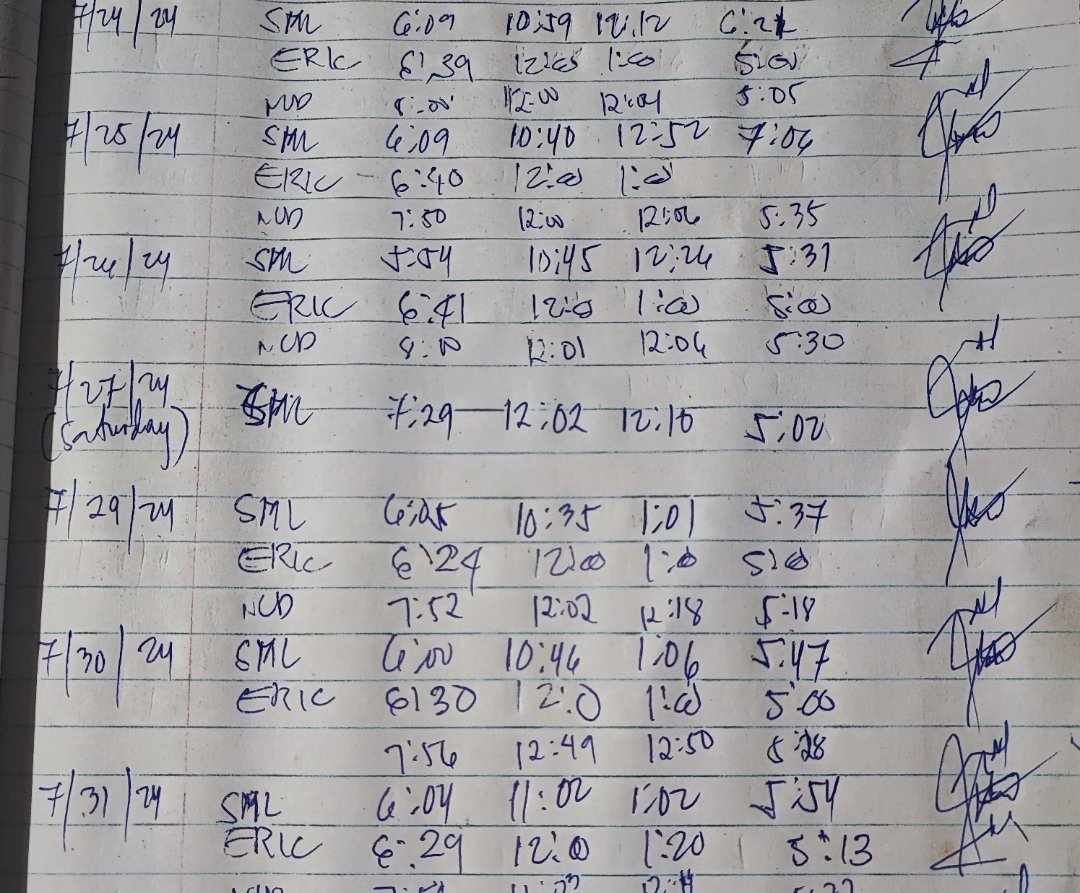 7/24/24 SML 6:09 10:59 12:12 6:21
ERIC 6:39 12:00 1:00 5:00
NUD 8:00 12:00 12:04 5:05
7/25/24 SML 6:09 10:40 12:52 7:06
ERIC 6:40 12:00 1:00
NUD 7:50 12:00 12:06 5:35
7/26/24 SML 5:54 10:45 12:26 5:31
ERIC 6:41 12:0 1:00 5:00
NUD 8:00 12:01 12:06 5:30
7/27/24 SML 7:29 12:02 12:10 5:02
(Saturday)
7/29/24 SML 6:05 10:35 1:01 5:37
ERIC 6:24 12:00 1:0 5:0
NUD 7:52 12:02 12:18 5:18
7/30/24 SML 6:00 10:46 1:06 5:47
ERIC 6:30 12:0 1:00 5:00
7:56 12:49 12:50 5:28
7/31/24 SML 6:04 11:02 1:02 5:54
ERIC 6:29 12:0 1:20 5:13